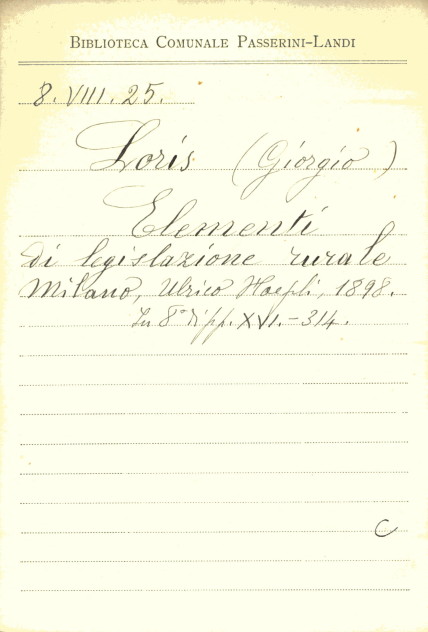 BIBLIOTECA COMUNALE PASSERINI-LANDI
8. VIII. 25.
Loris (Giorgio)
Elementi
di legislazione rurale
Milano, Ulrico Hoepli, 1898.
In 8° di pp. XVI.-314.
C